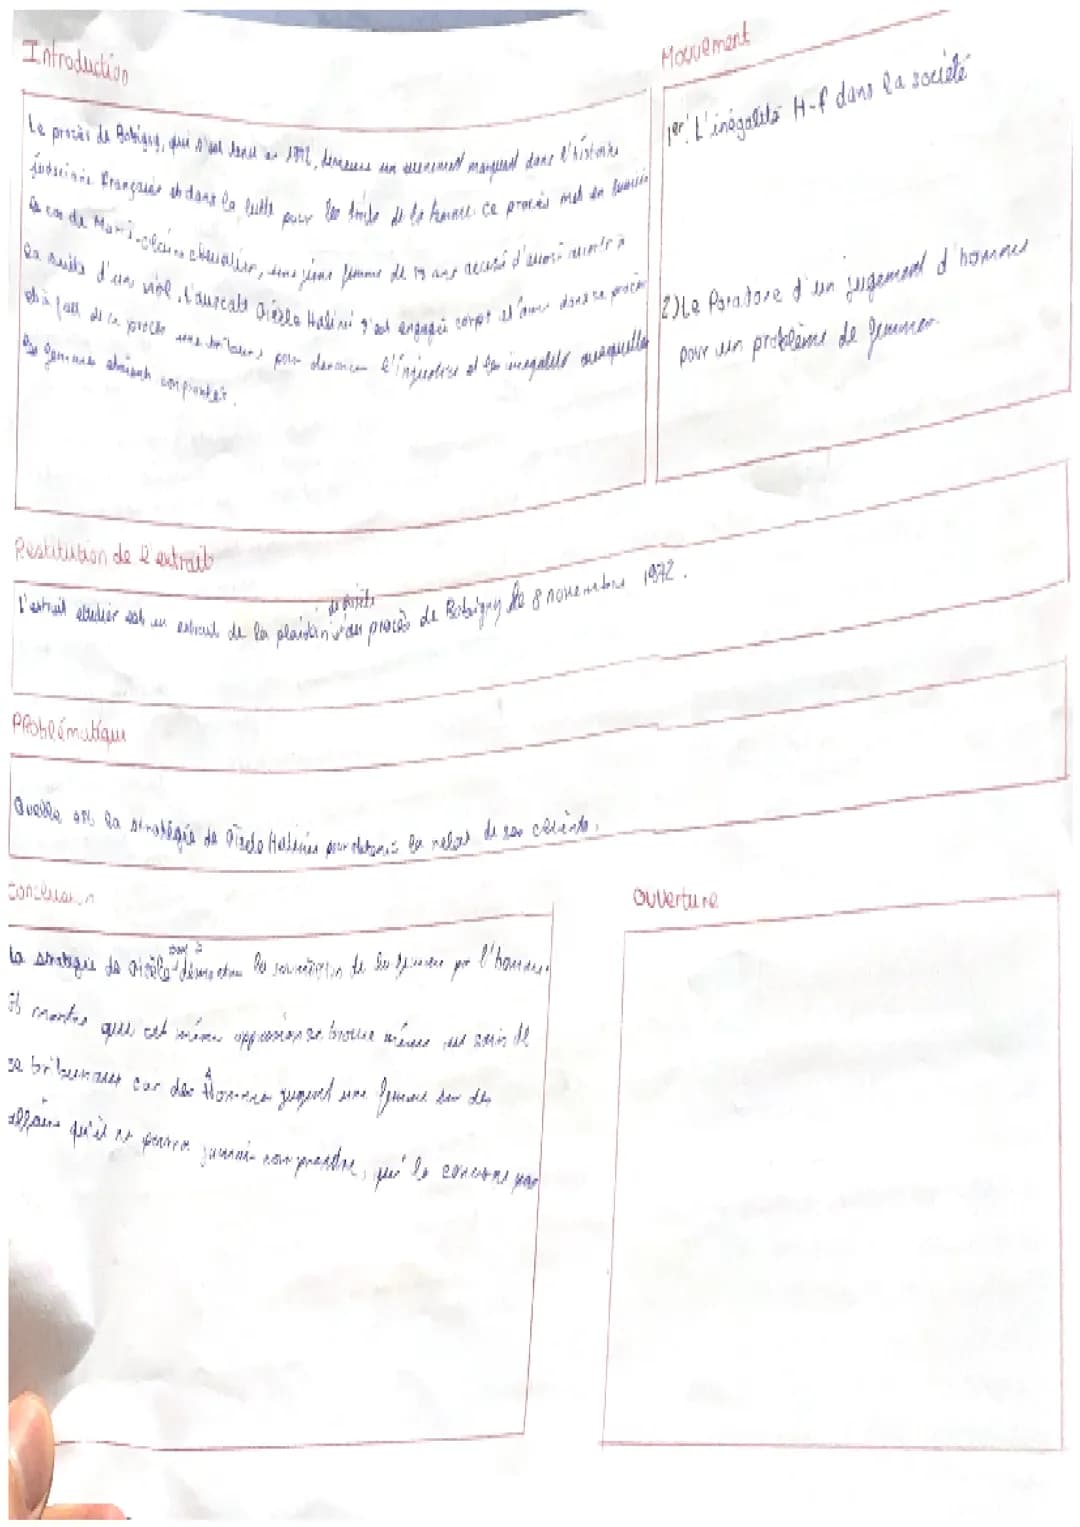 Introduction
Le procès de Bobigny, qui s'est tenu en 1972, demeure un evenement marquant dans l'histoire
judiciaire Française et dans la lutte pour les droits de la femme. ce procès met en lumière
le cas de Marie-claire chevalier, une jeune femme de ans accusé d'avoir avorté à
la suite d'un viol. L'avocate Gisèle Halimi s'est engagée corps et âme dans ce procès
et à fait de ce procès une tribune pour denoncer l'injustice et les inégalités auxquelles
les femmes étaient confrontés.
Mouvement
1er: L'inégalité H-f dans la société
2) Le Paradoxe d'un jugement d'hommes
pour un problème de femmes.
Restitution de l'extrait
de Gisèle
L'extrait étudier est un extrait de la du procès de Bobigny le 8 novembre 1972.
PRoblématique
Quelle est la stratégie de Gisèle Halimi pour la de ses
Conclusion
La stratégie de Gisèle démontrer la de la femme par l'homme.
Il montre que cet même oppression se trouve même au sein de
se tribunaux car des Hommes jugent une femme sur des
affaire qu'il ne pourra jamais comprendre, qui le concerne pas
Ouverture